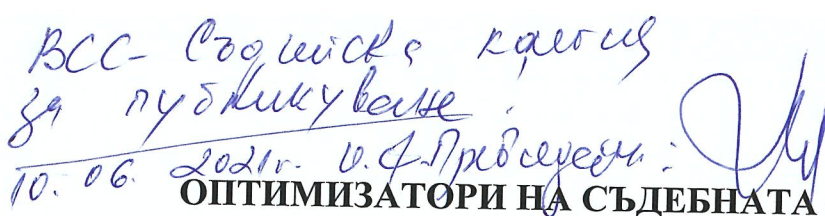 ВСС - Съдийска колегия
за публикуване!
10.06.2021г. И.Ф. Председател:
ОПТИМИЗАТОРИ НА СЪДЕБНАТА